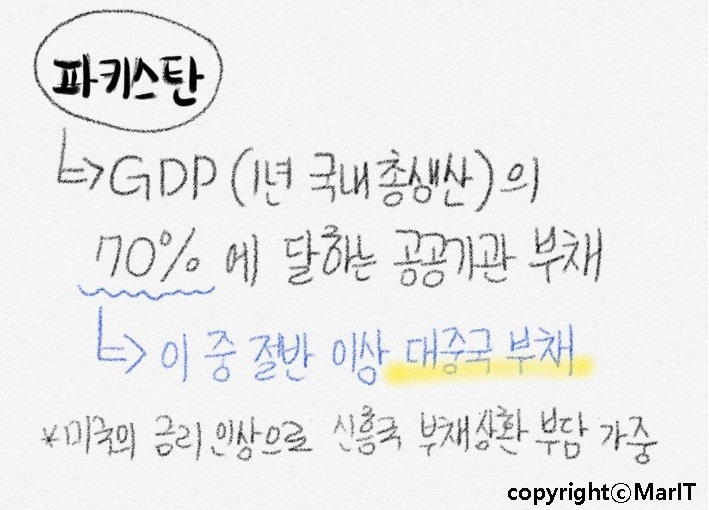 파키스탄
↳GDP (1년 국내총생산)의
70%에 달하는 공공기관 부채
↳이 중 절반 이상 대중국 부채
*미국의 금리 인상으로 신흥국 부채상환 부담 가중
copyrightⓒMarIT